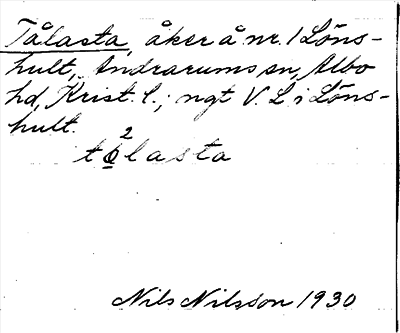 Tålasta, åker å nr. 1 Löns-
hult, Andrarums sn, Albo
hd, Krist. l.; ngt V. L i Löns-
hult.
2
t o l a s t a
Nils Nilsson 1930